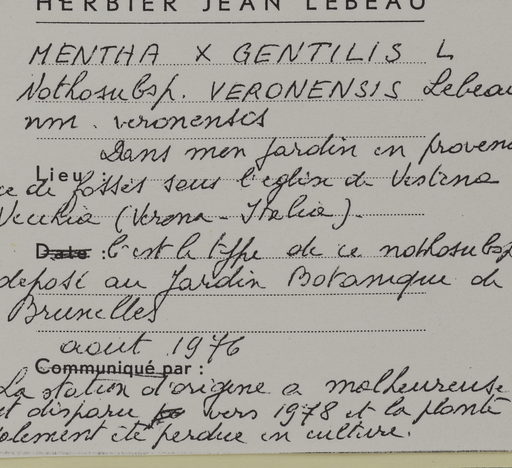 HERBIER JEAN LEBEAU
MENTHA X GENTILIS L
Nothosubsp. VERONENSIS Lebeau
nm. veronensis
Dans mon jardin en provenan
Lieu :
ce de fossés sous l'église de Vestena
Vecchia (Verona - Italia).
Date : C'est le type de ce nothosubsp
deposé au Jardin Botanique de
Bruxelles
aout 1976
Communiqué par :
La station d'origine a malheureuse
t disparu vers 1978 et la plante
alement été perdue en culture.